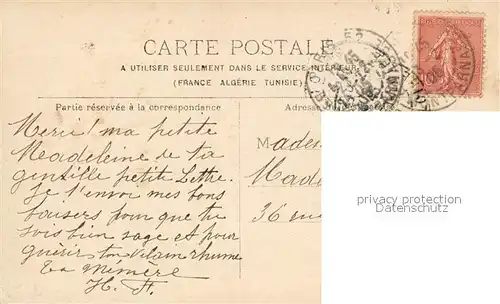 CARTE POSTALE
A UTILISER SEULEMENT DANS LE SERVICE INTÉRIEUR
(FRANCE ALGÉRIE TUNISIE)
Partie réservée à la correspondance
Adres
Merci! ma petite
Madeleine de ta
gentille petite Lettre.
Je t'envoi mes bons
baisers pour que tu
sois bien sage et pour
guérir ton vilain rhume
Ta Mémère
H. F.
Made
Made
36
privacy protection
Datenschutz